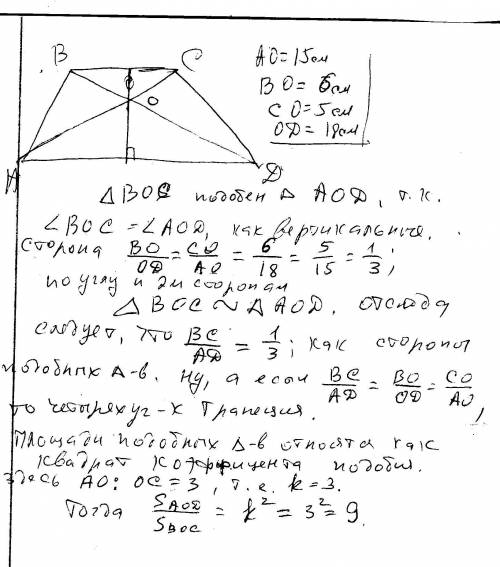 B C
O
A D
AO=15см
BO=6см
CO=5см
OD=18см
△BOC подобен △ AOD, т.к.
∠BOC=∠AOD, как вертикальные.
сторона BO/OD = CO/AO = 6/18 = 5/15 = 1/3;
по углу и 2м сторонам
△ BOC ~ △ AOD. отсюда
следует, что BC/AD = 1/3; как стороны
подобных △-в. Ну, а если BC/AD = BO/OD = CO/AO,
то четырехуг-к трапеция.
Площади подобных △-в относятся как
квадрат коэффициента подобия.
Здесь AO:OC=3, т.е. k=3.
Тогда S AOD / S BOC = k² = 3² = 9.